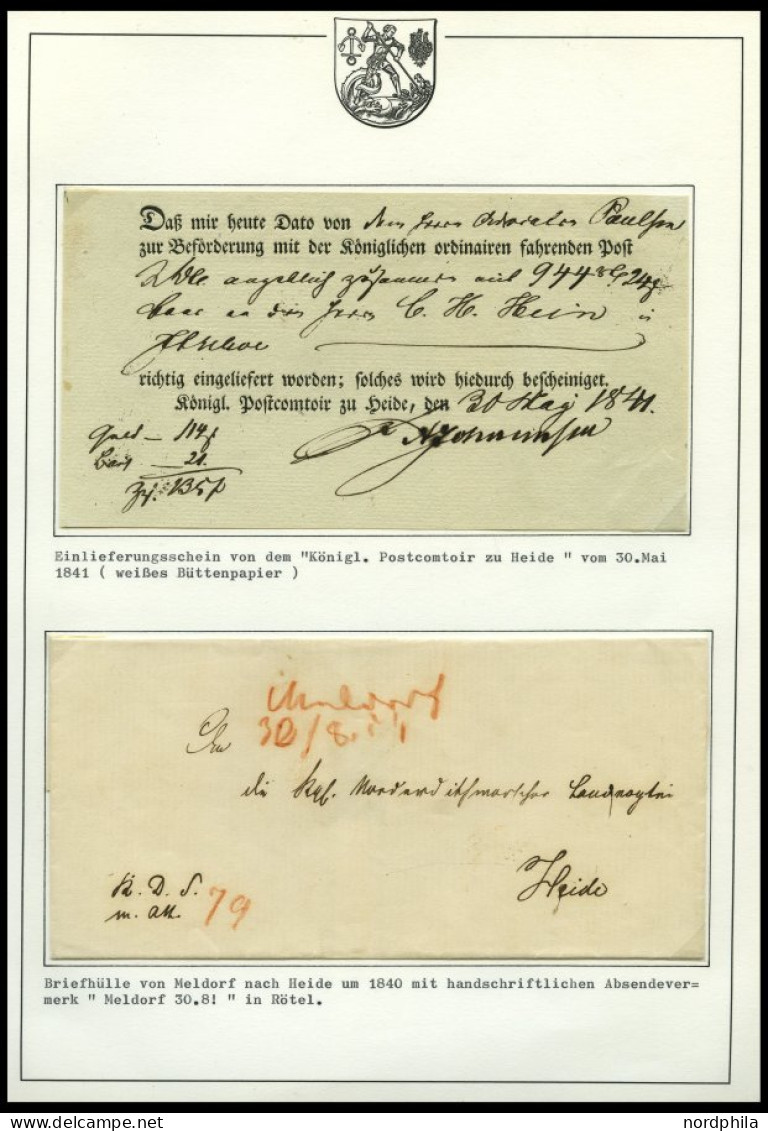 Daß mir heute Dato von dem Herrn Advocaten Paulsen
zur Beförderung mit der Königlichen ordinairen fahrenden Post
angeblich zusammen mit 944
an den Herrn C. H. Hein in
Itzehoe
richtig eingeliefert worden; solches wird hiedurch bescheiniget.
Königl. Postcomtoir zu Heide, den 30 May 1841.
Einlieferungsschein von dem "Königl. Postcomtoir zu Heide " vom 30.Mai
1841 ( weißes Büttenpapier )
Meldorf
30/8.
An
die Kgl. Norderdithmarscher Landvogtei
Heide
K. D. S.
m. Att.
79
Briefhülle von Meldorf nach Heide um 1840 mit handschriftlichen Absendever=
merk " Meldorf 30.8! " in Rötel.
nordphila